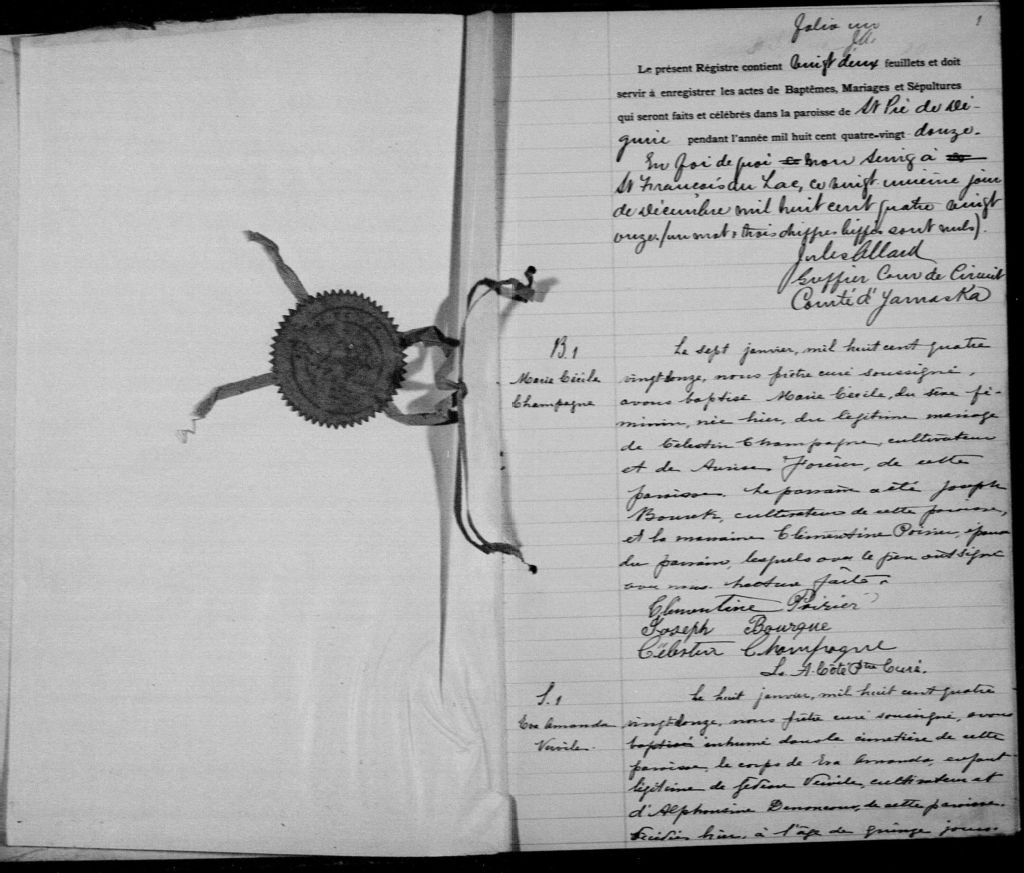 Folio un
J.A.
1
Le présent Régistre contient vingt deux feuillets et doit
servir à enregistrer les actes de Baptêmes, Mariages et Sépultures
qui seront faits et célébrés dans la paroisse de St Pie de De-
guire pendant l'année mil huit cent quatre-vingt douze.
En foi de quoi mon seing à
St François du Lac, ce vingt unième jour
de Décembre mil huit cent quatre vingt
onze. (un mot & trois chiffres biffés sont nuls).
Jules Allard
Greffier Cour de Circuit
Comté d'Yamaska
B. 1
Marie Cécile
Champagne
Le sept janvier, mil huit cent quatre
vingt douze, nous prêtre curé soussigné,
avons baptisé Marie Cécile, du sexe fé-
minin, née hier, du légitime mariage
de Célestin Champagne, cultivateur
et de Forcier, de cette
paroisse. Le parrain a été Joseph
Bourck, cultivateur de cette paroisse,
et la marraine Clémentine Poirier, épouse
du parrain, lesquels avec le père ont signé
avec nous. Lecture faite.
Clementine Poirier
Joseph Bourque
Célestin Champagne
L. A. Côté Ptre Curé.
S. 1
Eva Amanda
Veivile.
Le huit janvier, mil huit cent quatre
vingt douze, nous prêtre curé soussigné, avons
baptisé inhumé dans le cimetière de cette
paroisse, le corps de Eva Amanda, enfant
légitime de Gédéon Veivile, cultivateur et
d'Alphonsine Denoncour, de cette paroisse.
Décédée hier, à l'âge de quinze jours